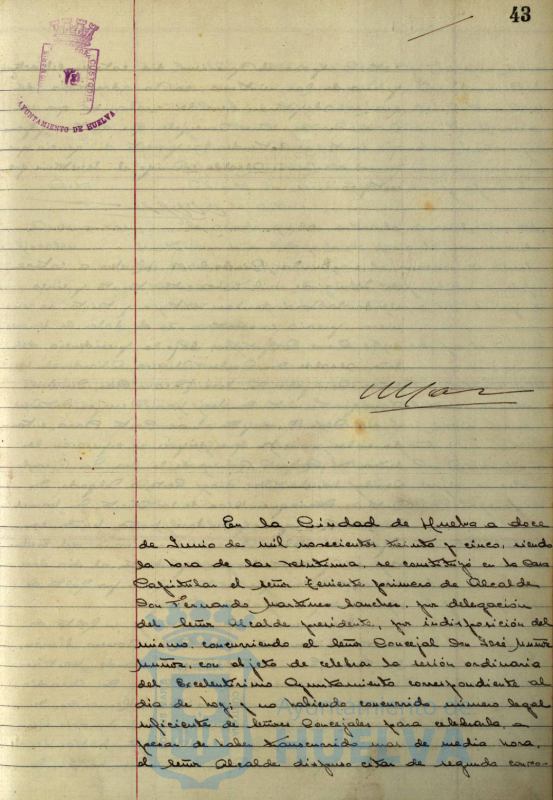 43
PORTUS CUSTODIA
AYUNTAMIENTO DE HUELVA
En la Ciudad de Huelva a doce
de Junio de mil novecientos treinta y cinco, siendo
la hora de las veintiuna, se constituyó en la Casa
Capitular el señor Teniente primero de Alcalde
Don Fernando Martinez Sanchez, por delegación
del Señor Alcalde presidente, por indisposición del
mismo, concurriendo el señor Concejal Don José Muñoz
Muñoz, con objeto de celebrar la sesión ordinaria
del Excelentísimo Ayuntamiento correspondiente al
dia de hoy; y no habiendo concurrido número legal
suficiente de Señores Concejales para celebrarla, a
pesar de haber transcurrido mas de media hora,
el Señor Alcalde dispuso citar de segunda convo-
Ayuntamiento de
HUELVA